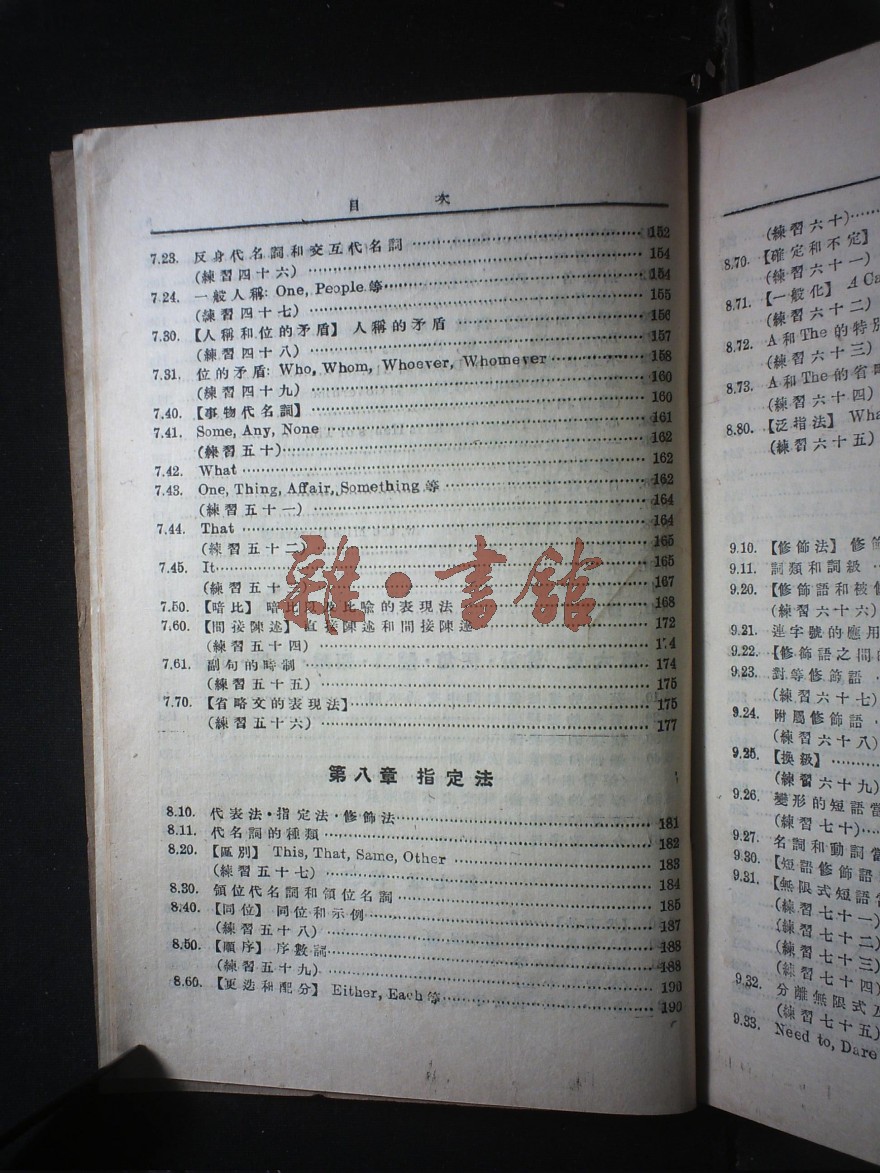 目 次
7.23. 反身代名詞和交互代名詞 152
(練習四十六) 154
7.24. 一般人稱: One, People 等 154
(練習四十七) 155
7.30. 【人稱和位的矛盾】 人稱的矛盾 156
(練習四十八) 157
7.31. 位的矛盾: Who, Whom, Whoever, Whomever 158
(練習四十九) 160
7.40. 【事物代名詞】 160
7.41. Some, Any, None 161
(練習五十) 162
7.42. What 162
7.43. One, Thing, Affair, Something 等 162
(練習五十一) 164
7.44. That 164
(練習五十二) 165
7.45. It 165
(練習五十三) 167
7.50. 【暗比】 暗比以及比喩的表現法 168
7.60. 【間接陳述】 直接陳述和間接陳述 172
(練習五十四) 174
7.61. 副句的時制 174
(練習五十五) 175
7.70. 【省略文的表現法】 175
(練習五十六) 177
第八章 指定法
8.10. 代表法·指定法·修飾法 181
8.11. 代名詞的種類 182
8.20. 【區別】 This, That, Same, Other 183
(練習五十七) 184
8.30. 領位代名詞和領位名詞 185
8.40. 【同位】 同位和示例 187
(練習五十八) 188
8.50. 【順序】 序數詞 188
(練習五十九) 190
8.60. 【更迭和配分】 Either, Each 等 190
雜·書館
(練習六十)
8.70. 【確定和不定】
(練習六十一)
8.71. 【一般化】 A Ca
(練習六十二)
8.72. A 和 The 的特別
(練習六十三)
8.73. A 和 The 的省
(練習六十四)
8.80. 【泛指法】 Wha
(練習六十五)
9.10. 【修飾法】 修飾
9.11. 詞類和詞級
9.20. 【修飾語和被修
(練習六十六)
9.21. 連字號的應用
9.22. 【修飾語之間的
9.23. 對等修飾語
(練習六十七)
9.24. 附屬修飾語
(練習六十八)
9.25. 【換級】
(練習六十九)
9.26. 變形的短語當
(練習七十)
9.27. 名詞和動詞當
9.30. 【短語修飾語
9.31. 【無限式短語
(練習七十一)
(練習七十二)
(練習七十三)
(練習七十四)
9.32. 分離無限式及
(練習七十五)
9.33. Need to, Dare